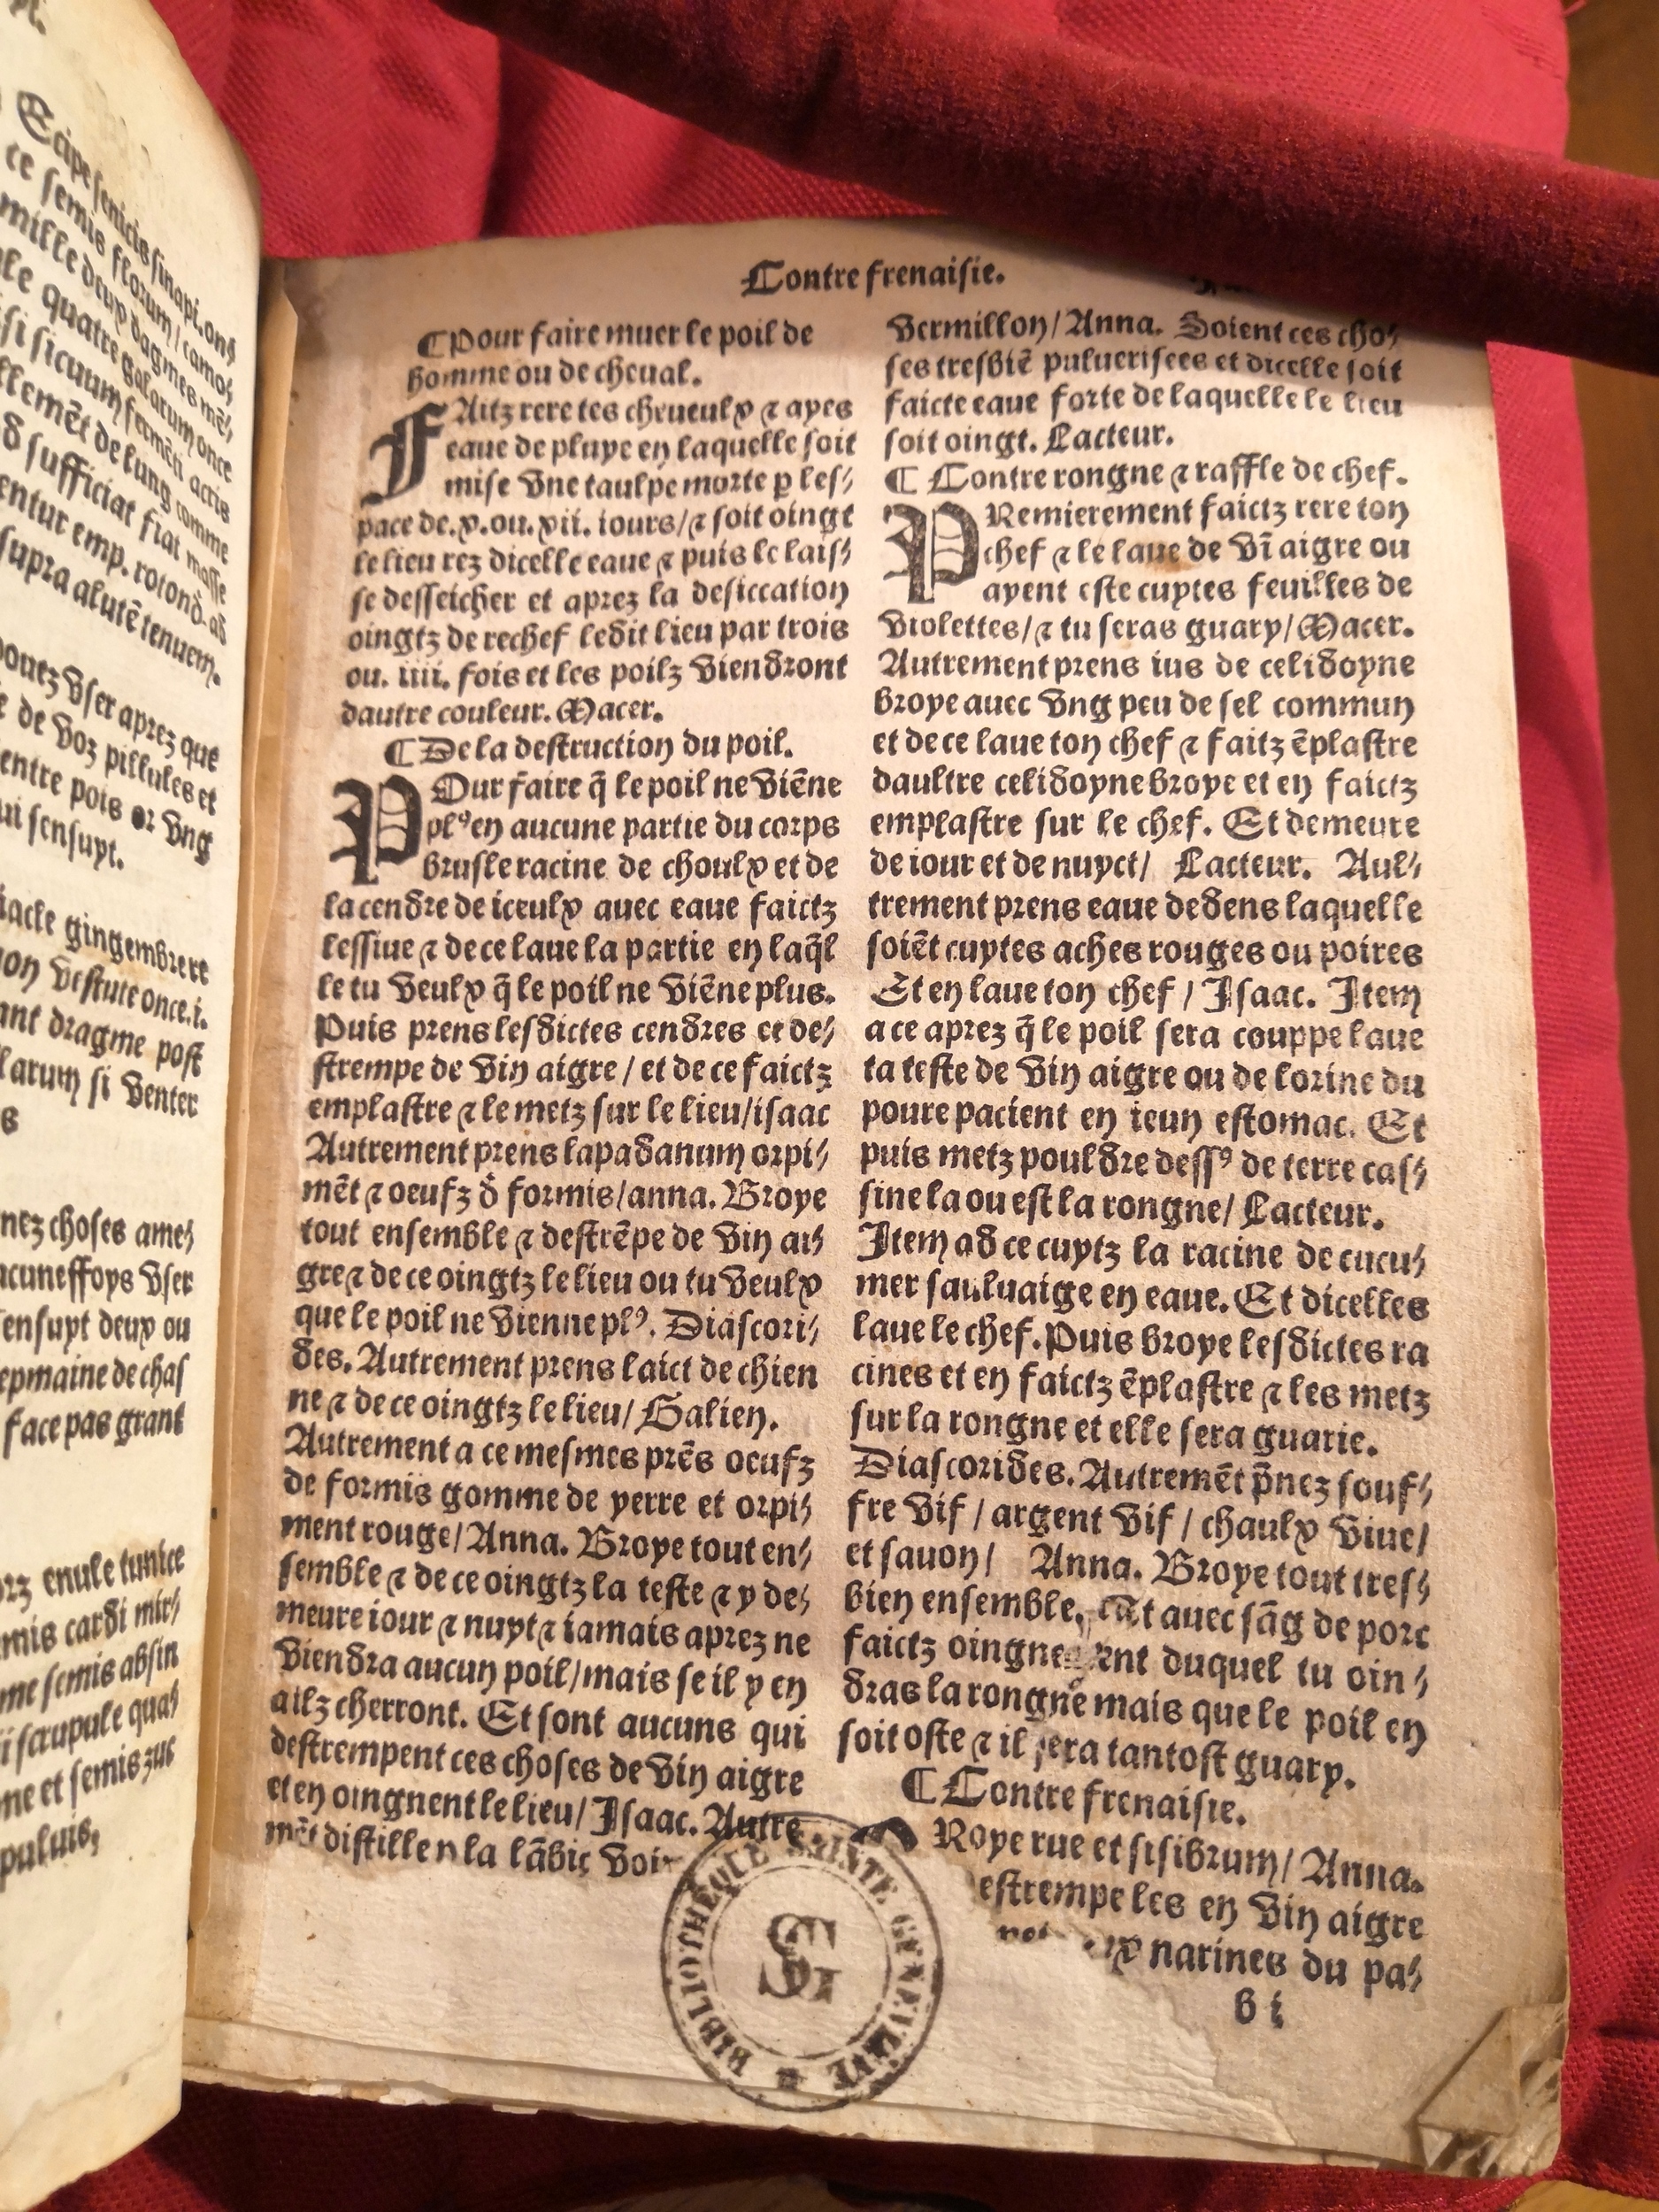 Ecipe senicis sinapi. onş
ce semis florum / camoş
mille deux dagmes mēş
quatre galarum once
si sicuum fermēti acris
llemēt de lung comme
sufficiat fiat masse
entur emp. rotond. ad
supra alutē tenuem.
vser aprez que
de voz pillules et
entre pois or vng
ui sensuyt.
iacle gingembre re
on vestute once. i.
ant dragme post
larum si venter
s
nez choses ame⸗
acuneffoys vser
ensuyt deux ou
epmaine de chas
face pas grant
enule tunice
mis cardi mir⸗
me semis absin
scrupule qua⸗
ne et semis zuc
puluis,
Contre frenaisie.
¶ Pour faire muer le poil de
homme ou de cheual.
FAitz rere tes cheueulx ⁊ ayes
eaue de pluye en laquelle soit
mise vne taulpe morte ꝑ les⸗
pace de. x. ou. xii. iours/ ⁊ soit oingt
le lieu rez dicelle eaue ⁊ puis le lais⸗
se desseicher et aprez la desiccation
oingtz de rechef ledit lieu par trois
ou. iiii. fois et les poilz viendront
dautre couleur. Macer.
¶ De la destruction du poil.
POur faire q̄ le poil ne viēne
plꝰ en aucune partie du corps
brusle racine de choulx et de
la cendre de iceulx auec eaue faictz
lessiue ⁊ de ce laue la partie en laq̄l
le tu veulx q̄ le poil ne viēne plus.
Puis prens lesdictes cendres et de⸗
strempe de vin aigre / et de ce faictz
emplastre ⁊ le metz sur le lieu/ isaac
Autrement prens lapadanum orpi⸗
mēt ⁊ oeufz d̄ formis/ anna. Broye
tout ensemble ⁊ destrēpe de vin ai⸗
gre ⁊ de ce oingtz le lieu ou tu veulx
que le poil ne vienne plꝰ. Diascori⸗
des. Autrement prens laict de chien
ne ⁊ de ce oingtz le lieu/ Galien.
Autrement a ce mesmes prēs oeufz
de formis gomme de yerre et orpi⸗
ment rouge/ Anna. Broye tout en⸗
semble ⁊ de ce oingtz la teste ⁊ y de⸗
meure iour ⁊ nuyt ⁊ iamais aprez ne
viendra aucun poil/ mais se il y en
a ilz cherront. Et sont aucuns qui
destrempent ces choses de vin aigre
et en oingnent le lieu/ Isaac. Autre
mēt distille la lābic
Vermillon/ Anna. Soient ces cho⸗
ses tresbiē puluerisees et dicelle soit
faicte eaue forte de laquelle le lieu
soit oingt. Lacteur.
¶ Contre rongne ⁊ raffle de chef.
PRemierement faictz rere ton
chef ⁊ le laue de vī aigre ou
ayent este cuytes feuilles de
violettes/ ⁊ tu seras guary/ Macer.
Autrement prens ius de celidoyne
broye auec vng peu de sel commun
et de ce laue ton chef ⁊ faitz ēplastre
daultre celidoyne broye et en faictz
emplastre sur le chef. Et demeure
de iour et de nuyct/ Lacteur. Aul⸗
trement prens eaue dedens laquelle
soiēt cuytes aches rouges ou poires
Et en laue ton chef / Isaac. Item
a ce aprez q̄ le poil sera couppe laue
ta teste de vin aigre ou de lorine du
poure pacient en ieun estomac. Et
puis metz pouldre dessꝰ de terre cas⸗
sine la ou est la rongne/ Lacteur.
Item ad ce cuytz la racine de cucu⸗
mer sauluaige en eaue. Et dicelles
laue le chef. Puis broye lesdictes ra
cines et en faictz ēplastre ⁊ les metz
sur la rongne et elle sera guarie.
Diascorides. Autremēt p̄nez souf⸗
fre vif / argent vif / chaulx viue/
et sauon/ Anna. Broye tout tres⸗
bien ensemble, auec sāg de porc
faictz oingnement duquel tu oin⸗
dras la rongne mais que le poil en
soit oste ⁊ il sera tantost guary.
¶ Contre frenaisie.
Roye rue et sisibrum/ Anna.
estrempe les en vin aigre
narines du pa⸗
b i
BIBLIOTHEQUE SAINTE GENEVIEVE
SG